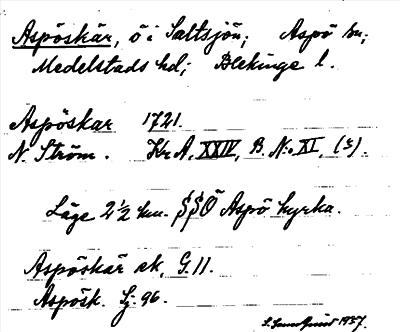 Aspöskär, ö i Saltsjön; Aspö sn;
Medelstads hd; Blekinge l.
Aspöskar 1721.
N. Ström. Kr. A. XXIV, B. No. XI, (3).
Läge 2 1/2 km. SSÖ Aspö kyrka.
Aspöskär ek. G. 11.
Aspösk. Sj. 96.
1937.